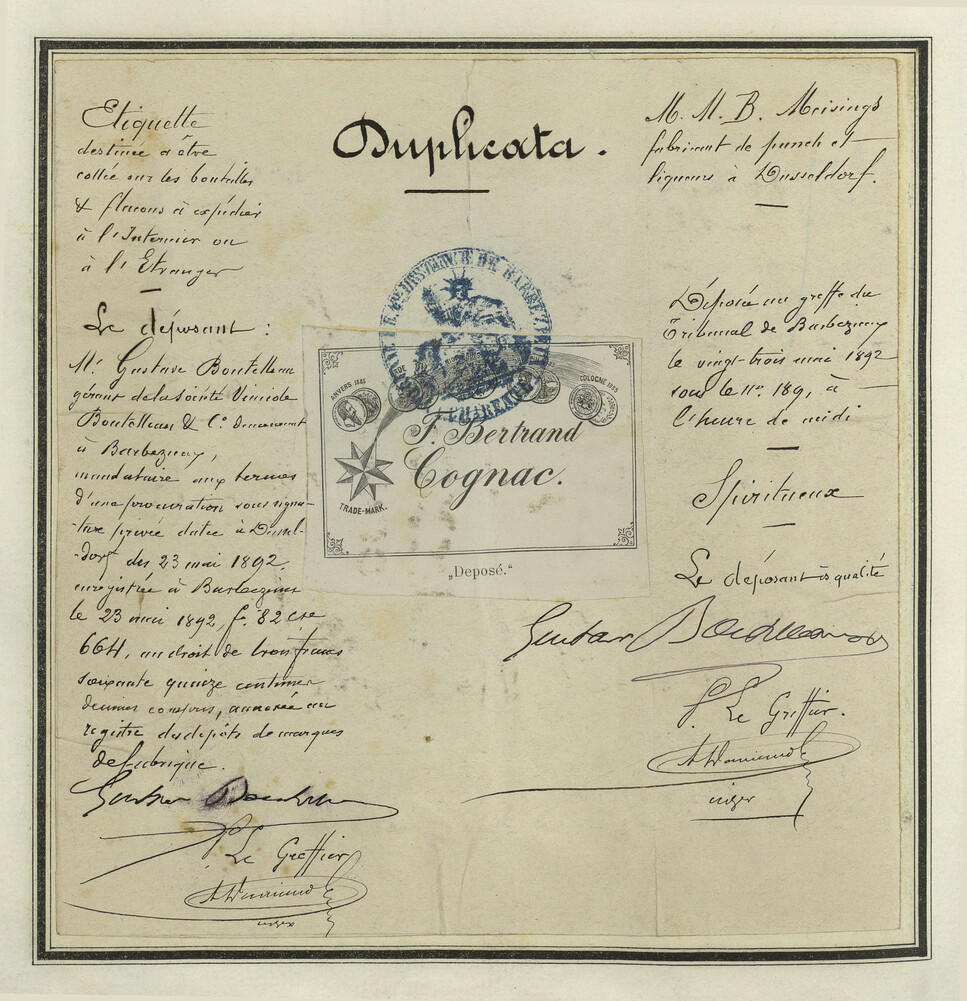 Duplicata.
Etiquette
destinée à être
collée sur les bouteilles
& flacons à expédier
à l'Internier ou
à l'Etranger
Le déposant :
Mr. Gustave Boutelleau
gérant de la Société Vinicole
Boutelleau & Co. demeurant
à Barbezieux,
mandataire aux termes
d'une procuration sous signa-
-ture privée datée à Dussel-
-dorf du 23 mai 1892,
enregistrée à Barbezieux
le 23 mai 1892, fo. 82 cse
664, au droit de trois francs
soixante quinze centimes
décimes compris, annexée au
registre des dépôts de marques
de fabrique.
P. Le Greffier
M. M. B. Meisings
fabricant de punch et
liqueurs à Dusseldorf.
Déposée au greffe du
Tribunal de Barbezieux
le vingt-trois mai 1892
sous le No. 189, à
l'heure de midi
Spiritueux
Le déposant ès qualité
Gustave Boutelleau
P. Le Greffier.
DE BARBEZIEUX
CHARENTE
ANVERS 1885
COLOGNE 1885
F. Bertrand
Cognac.
TRADE-MARK.
„Deposé.“